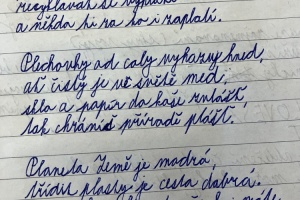 recyklovat se vyplatí
a někdo ti za to i zaplatí.
Plechovky od coly vyhazuj hned,
ať čistý je ve světě med;
skla a papír do koše zvlášť,
tak chráníš přírodě plášť.
Planeta Země je modrá,
třídit plasty je cesta dobrá.